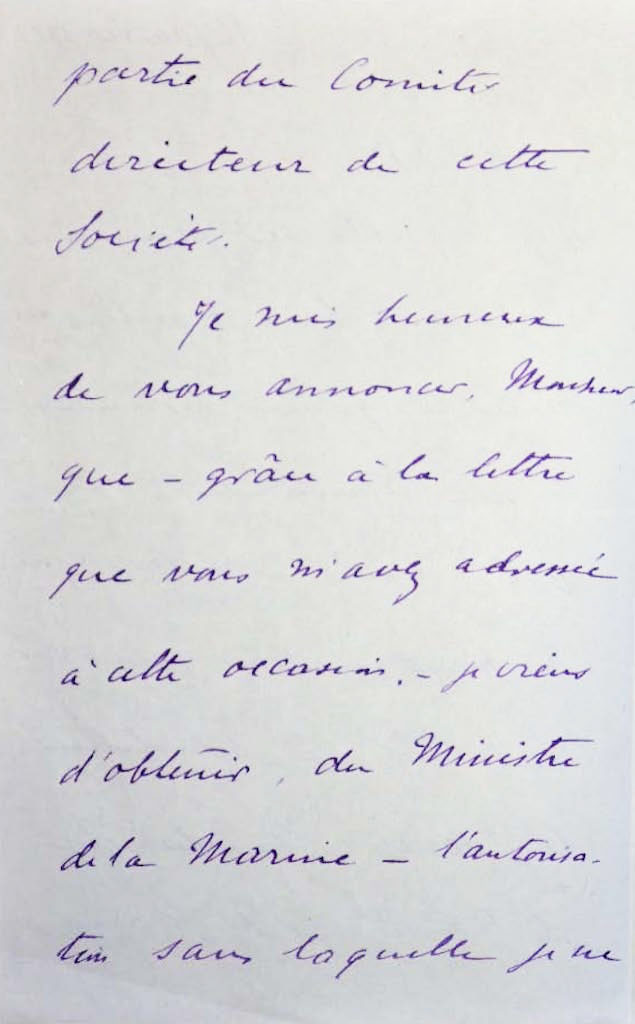 partie du Comité
directeur de cette
Société.
Je suis heureux
de vous annoncer, Monsieur,
que – grâce à la lettre
que vous m'avez adressée
à cette occasion, – je viens
d'obtenir, du Ministre
de la Marine – l'autorisa-
tion sans laquelle je ne